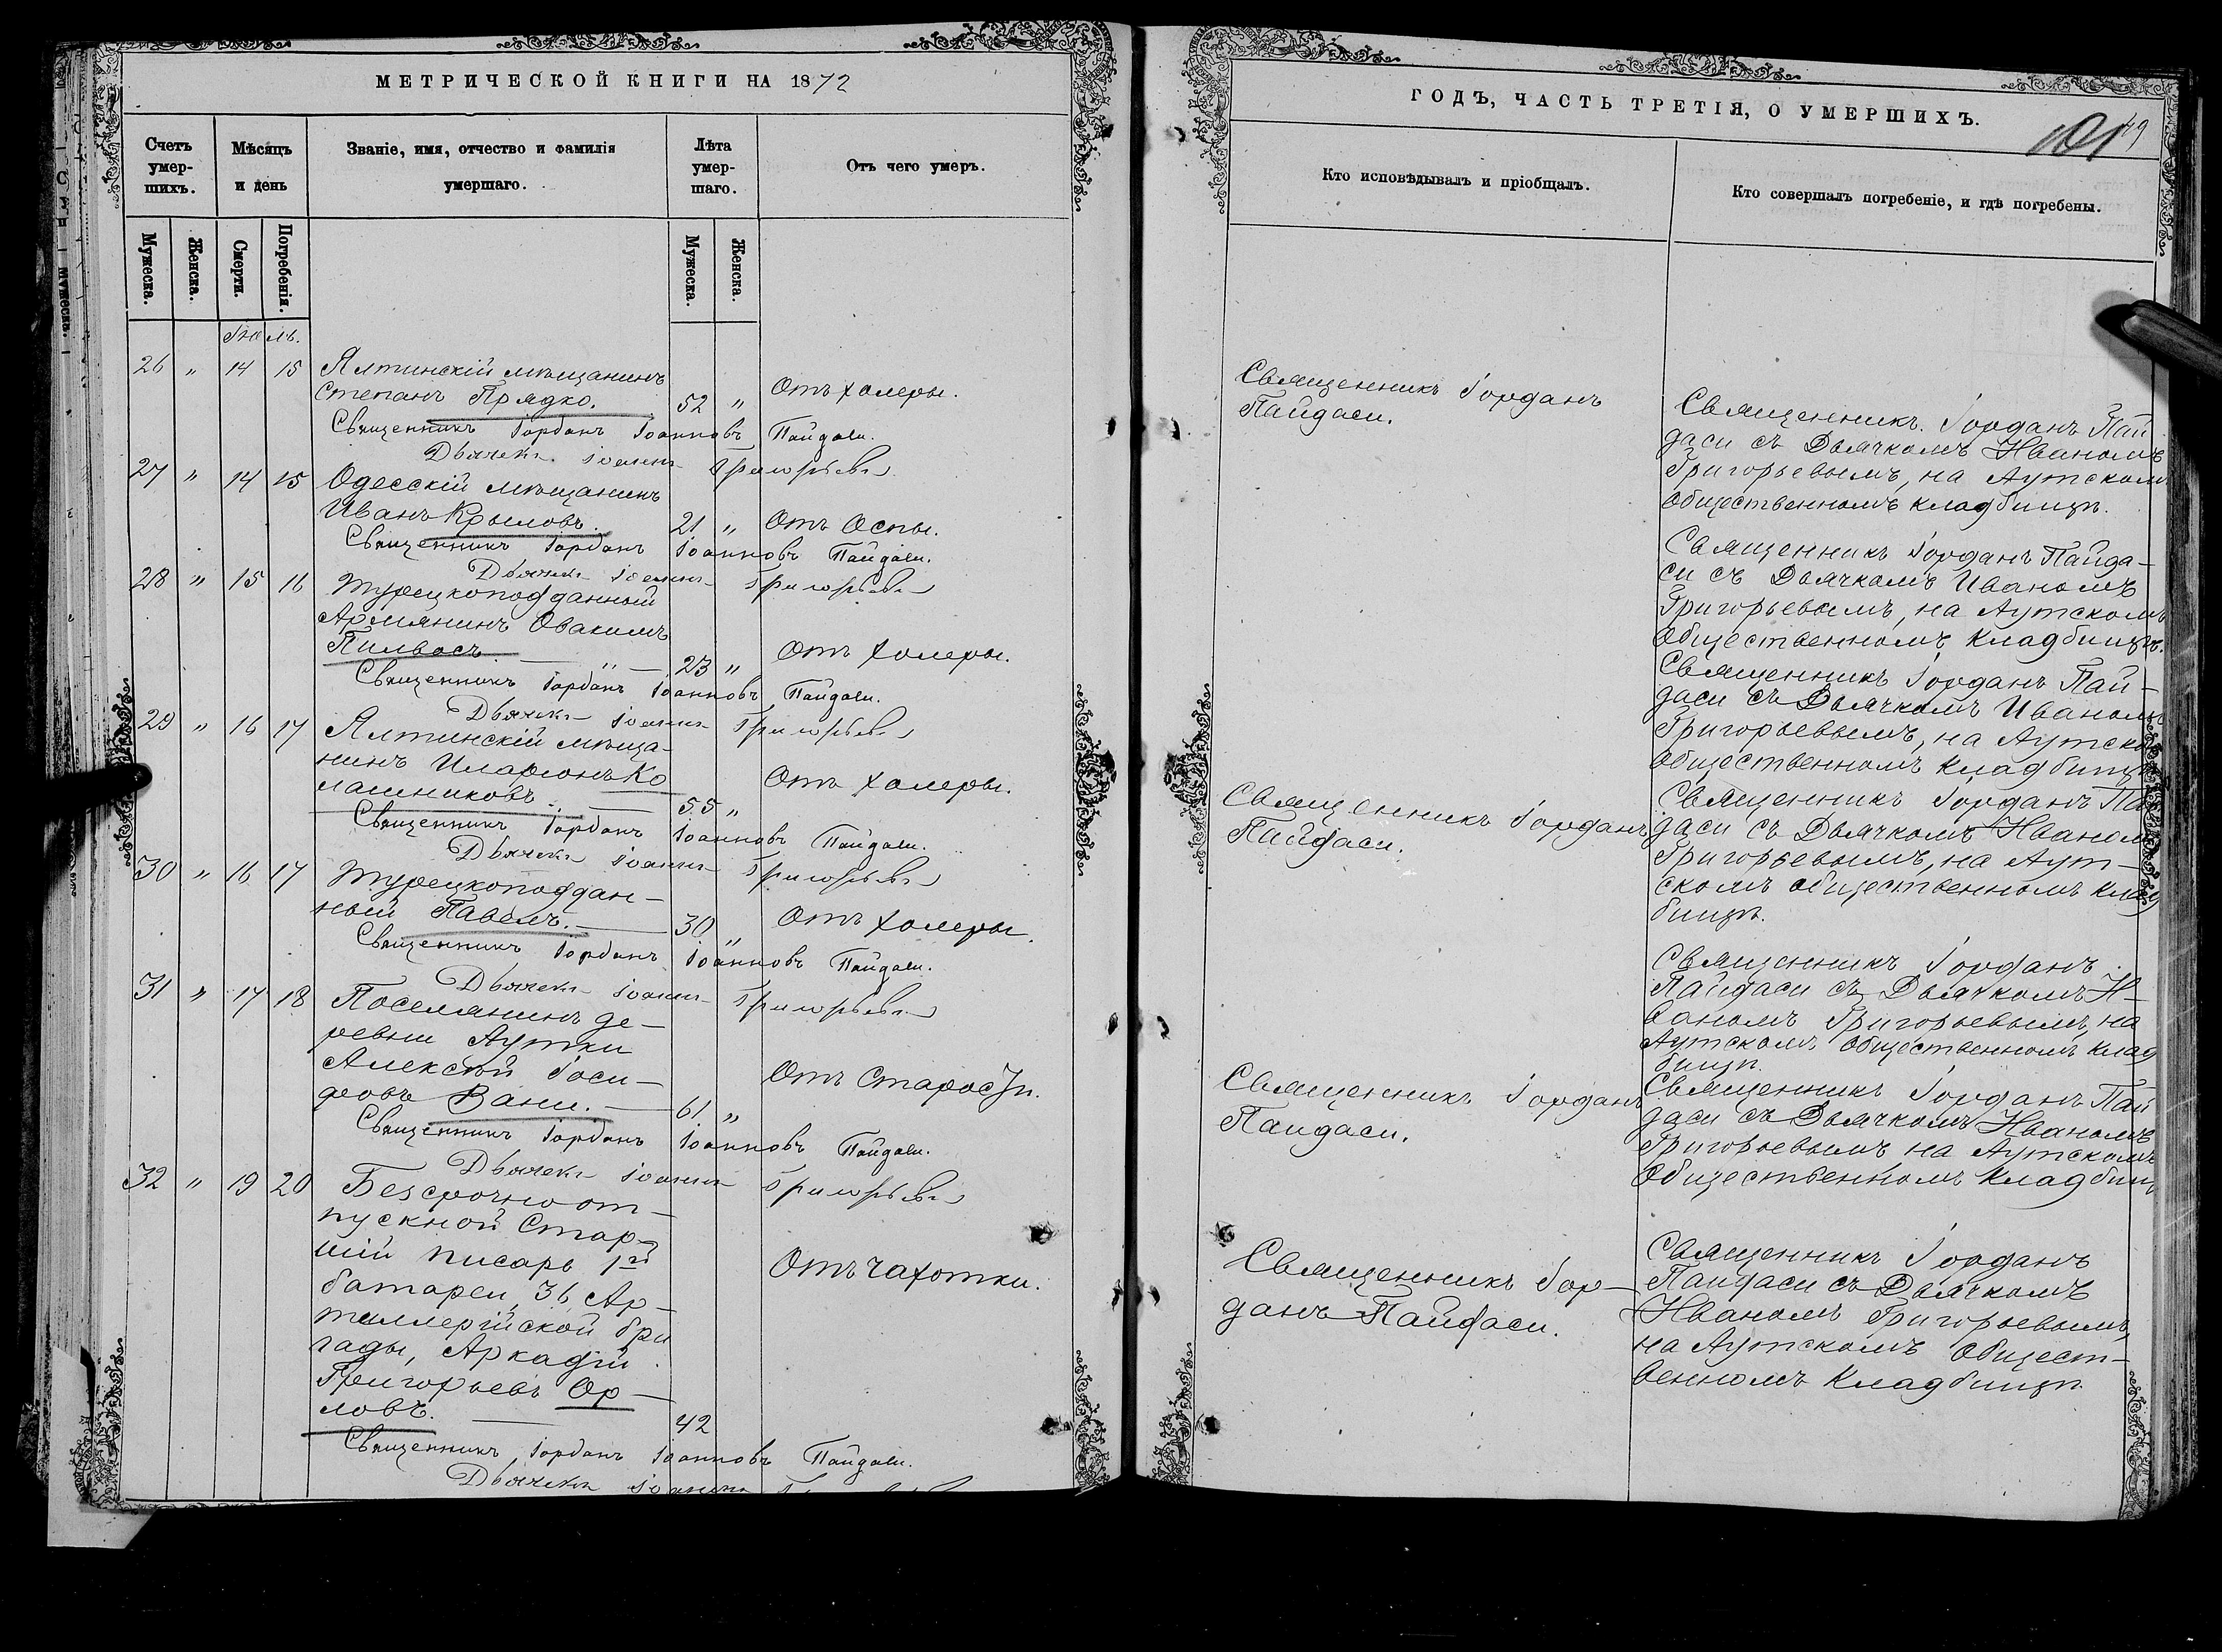 МЕТРИЧЕСКОЙ КНИГИ НА 1872
Счетъ умер-шихъ.
Мѣсяцъ и день
Званіе, имя, отчество и фамилія умершаго.
Лѣта умер-шаго.
Отъ чего умеръ.
Мужеска.
Женска.
Смерти.
Погребенія.
Мужеска.
Женска.
Іюль.
26 " 14 15 Ялтинскій мѣщанинъ
Степанъ Прядко. 52 " Отъ холеры.
Священникъ Іорданъ Іоанновъ Пайдаси.
Дьячекъ Іоаннъ Григорьевъ
27 " 14 15 Одесскій мѣщанинъ
Иванъ Крыловъ. 21 " Отъ Оспы.
Священникъ Іорданъ Іоанновъ Пайдаси.
Дьячекъ Іоаннъ Григорьевъ
28 " 15 16 Турецкоподданный
Армянинъ Овакимъ
Пилвасъ. — " — 23 " Отъ холеры.
Священникъ Іорданъ Іоанновъ Пайдаси.
Дьячекъ Іоаннъ Григорьевъ
29 " 16 17 Ялтинскій мѣща-
нинъ Иларіонъ Ко
лашниковъ. — 55 " Отъ халеры.
Священникъ Іорданъ Іоанновъ Пайдаси.
Дьячекъ Іоаннъ Григорьевъ
30 " 16 17 Турецкоподдан-
ный Павелъ. — 30 " Отъ холеры.
Священникъ Іорданъ Іоанновъ Пайдаси.
Дьячекъ Іоаннъ Григорьевъ
31 " 17 18 Поселянинъ де-
ревни Аутки
Алексѣй Іоси-
фовъ Вани. — 61 " Отъ Старости.
Священникъ Іорданъ Іоанновъ Пайдаси.
Дьячекъ Іоаннъ Григорьевъ
32 " 19 20 Безсрочноот-
пускной Стар-
шій писарь 1й
батареи 36 Ар-
тиллерійской бри
гады, Аркадій
Григорьевъ Ор-
ловъ. — 42 Отъ чахотки.
Священникъ Іорданъ Іоанновъ Пайдаси.
Дьячекъ Іоаннъ
ГОДЪ, ЧАСТЬ ТРЕТІЯ, О УМЕРШИХЪ.
Кто исповѣдывалъ и пріобщалъ.
Кто совершалъ погребеніе, и гдѣ погребены.
Священникъ Іорданъ
Пайдаси.
Священникъ. Іорданъ Пай
даси съ Дьячкомъ Иваномъ
Григорьевымъ, на Аутскомъ
общественномъ кладбищѣ.
Священникъ Іорданъ Пайда-
си съ Дьячкомъ Иваномъ
Григорьевымъ, на Аутскомъ
Общественномъ Кладбищѣ.
Священникъ Іорданъ Пай-
даси съ Дьячкомъ Иваномъ
Григорьевымъ, на Аутско
общественномъ кладбищѣ
Священникъ Іорданъ
Пайдаси.
Священникъ Іорданъ Па
даси съ Дьячкомъ Иваномъ
Григорьевымъ, на Аут-
скомъ общественномъ клад
бищѣ.
Священникъ Іорданъ
Пайдаси съ Дьячкомъ И-
ваномъ Григорьевымъ, на
Аутскомъ Общественномъ Клад
бищѣ.
Священникъ Іорданъ
Пайдаси.
Священникъ Іорданъ Пай
даси съ Дьячкомъ Иваномъ
Григорьевымъ на Аутскомъ
Общественномъ Кладбищ
Священникъ Іор-
данъ Пайдаси.
Священникъ Іорданъ
Пайдаси съ Дьячкомъ
Иваномъ Григорьевымъ,
на Аутскомъ Общест-
венномъ Кладбищѣ